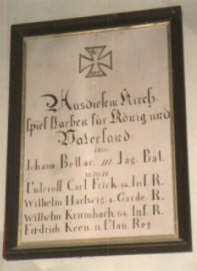 Aus diesem Kirch
spiel starben für König und
Vaterland
Johann Bellar. III Jäg. Bat.
Unteroff. Carl Frick 64 Inf. R.
Wilhelm Hartwig 2 Garde R.
Wilhelm Krumbach 64 Inf. R.
Fridrich Keen 11 Ulan. Reg.